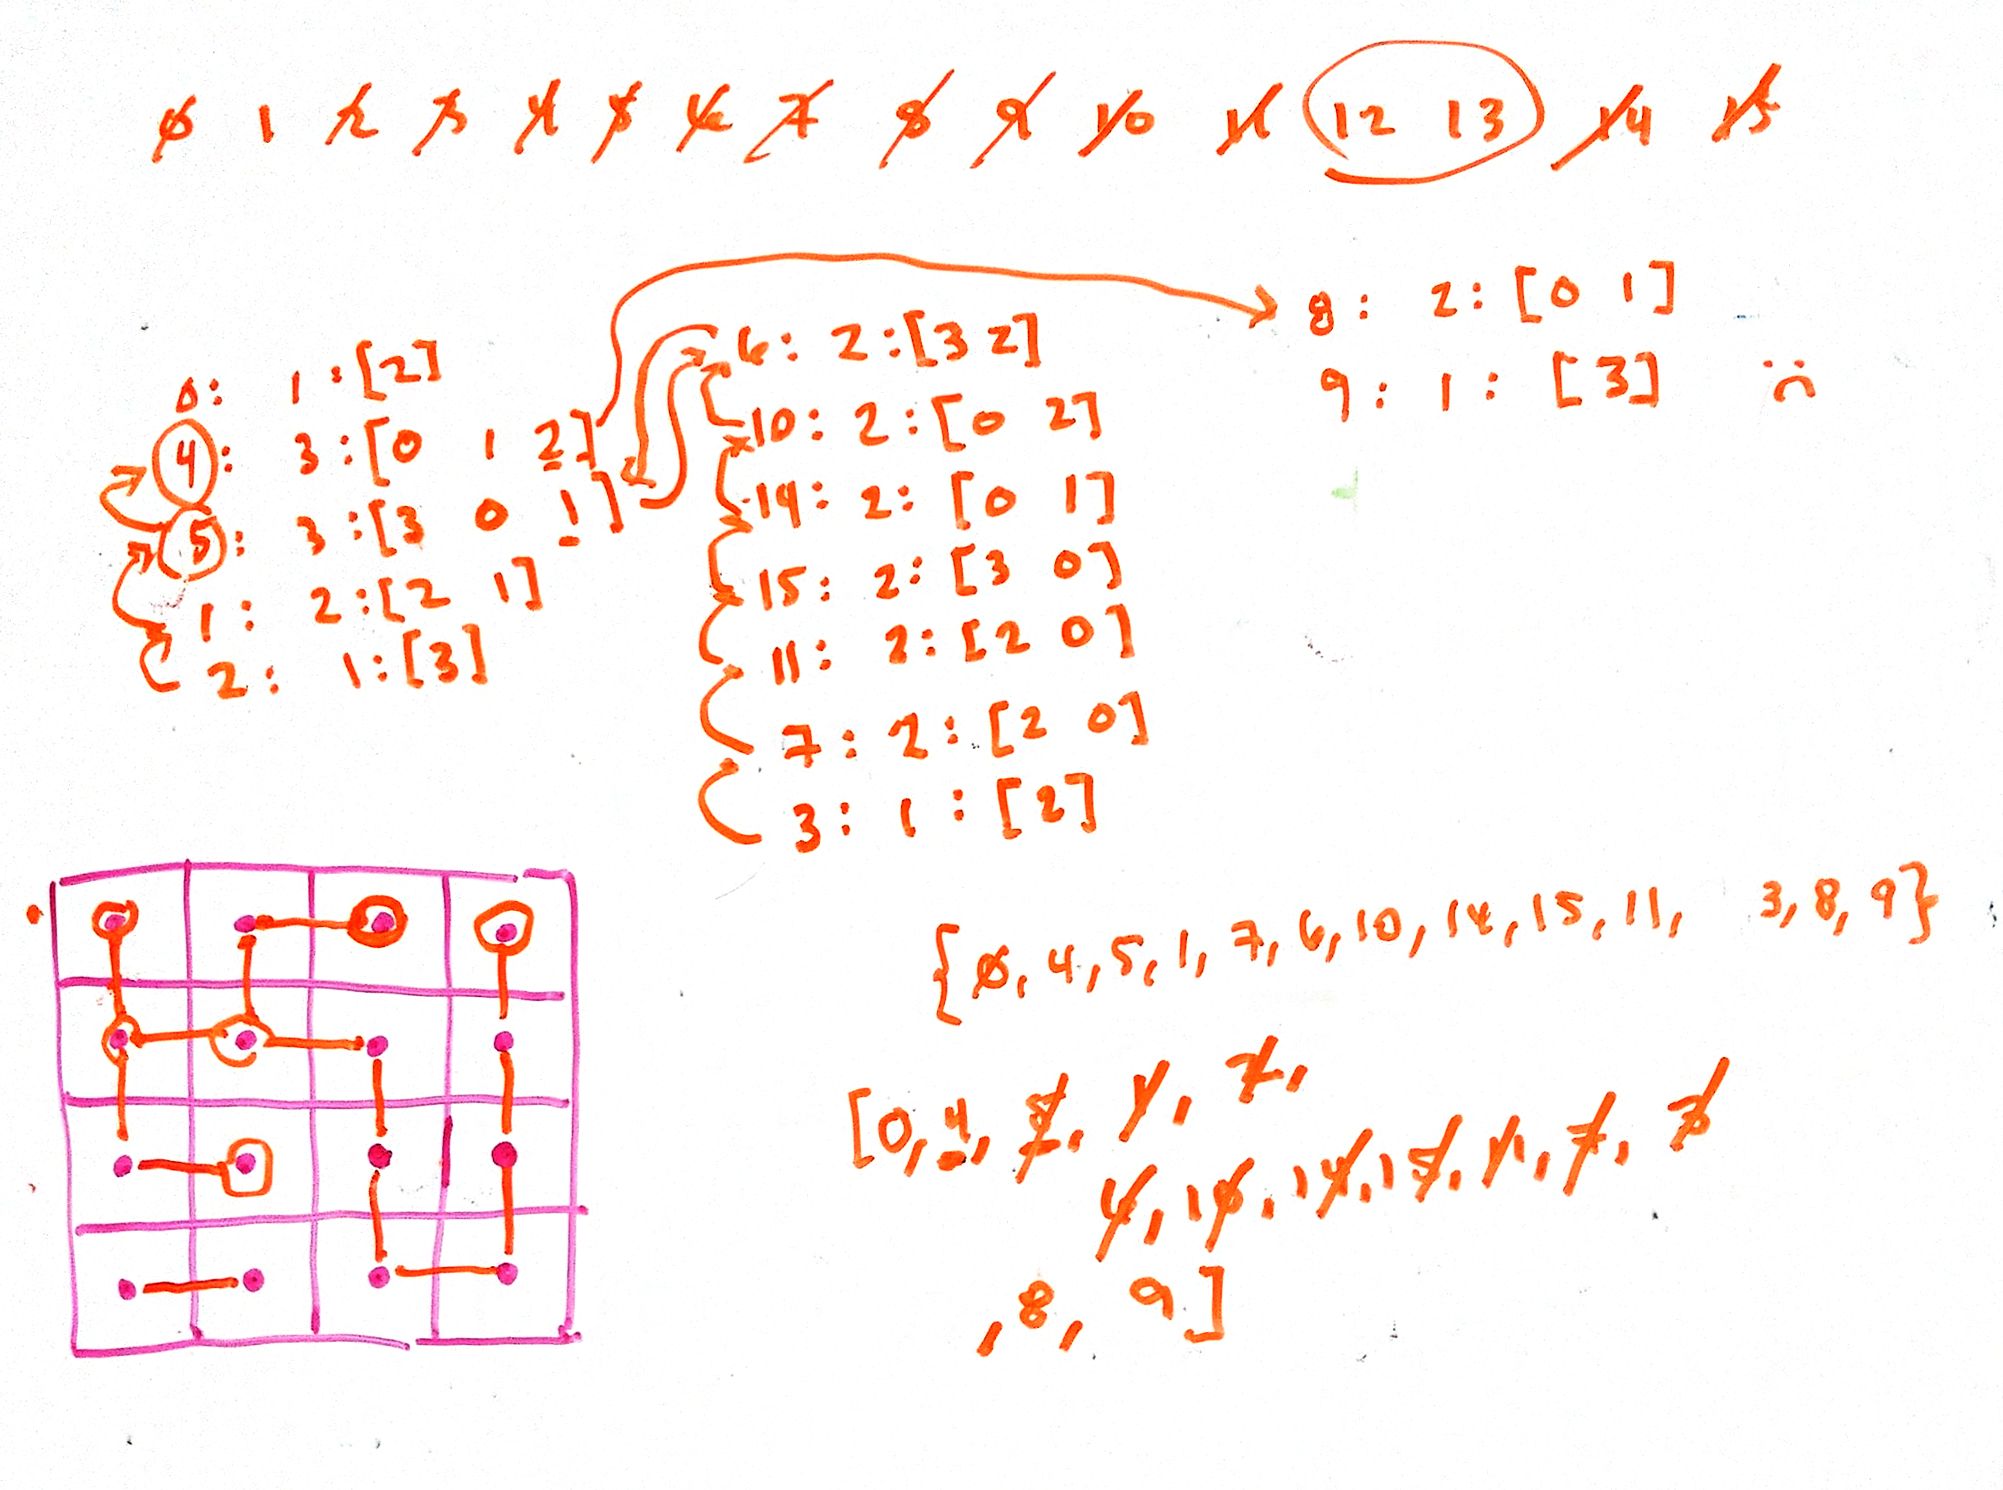 0 1 2 3 4 5 6 7 8 9 10 11 12 13 14 15
0: 1:[2]
4: 3:[0 1 2]
5: 3:[3 0 1]
1: 2:[2 1]
2: 1:[3]
6: 2:[3 2]
10: 2:[0 2]
14: 2:[0 1]
15: 2:[3 0]
11: 2:[2 0]
7: 2:[2 0]
3: 1:[2]
8: 2:[0 1]
9: 1:[3]
{0, 4, 5, 1, 7, 6, 10, 14, 15, 11, 3, 8, 9}
[0, 4, 5, 1, 7,
6, 10, 14, 15, 11, 7, 3
, 8, 9]